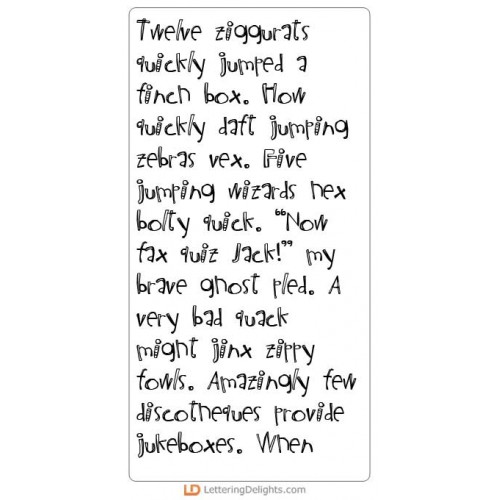 Twelve ziggurats
quickly jumped a
finch box. How
quickly daft jumping
zebras vex. Five
jumping wizards hex
bolty quick. “Now
fax quiz Jack!” my
brave ghost pled. A
very bad quack
might jinx zippy
fowls. Amazingly few
discotheques provide
jukeboxes. When
LD LetteringDelights.com